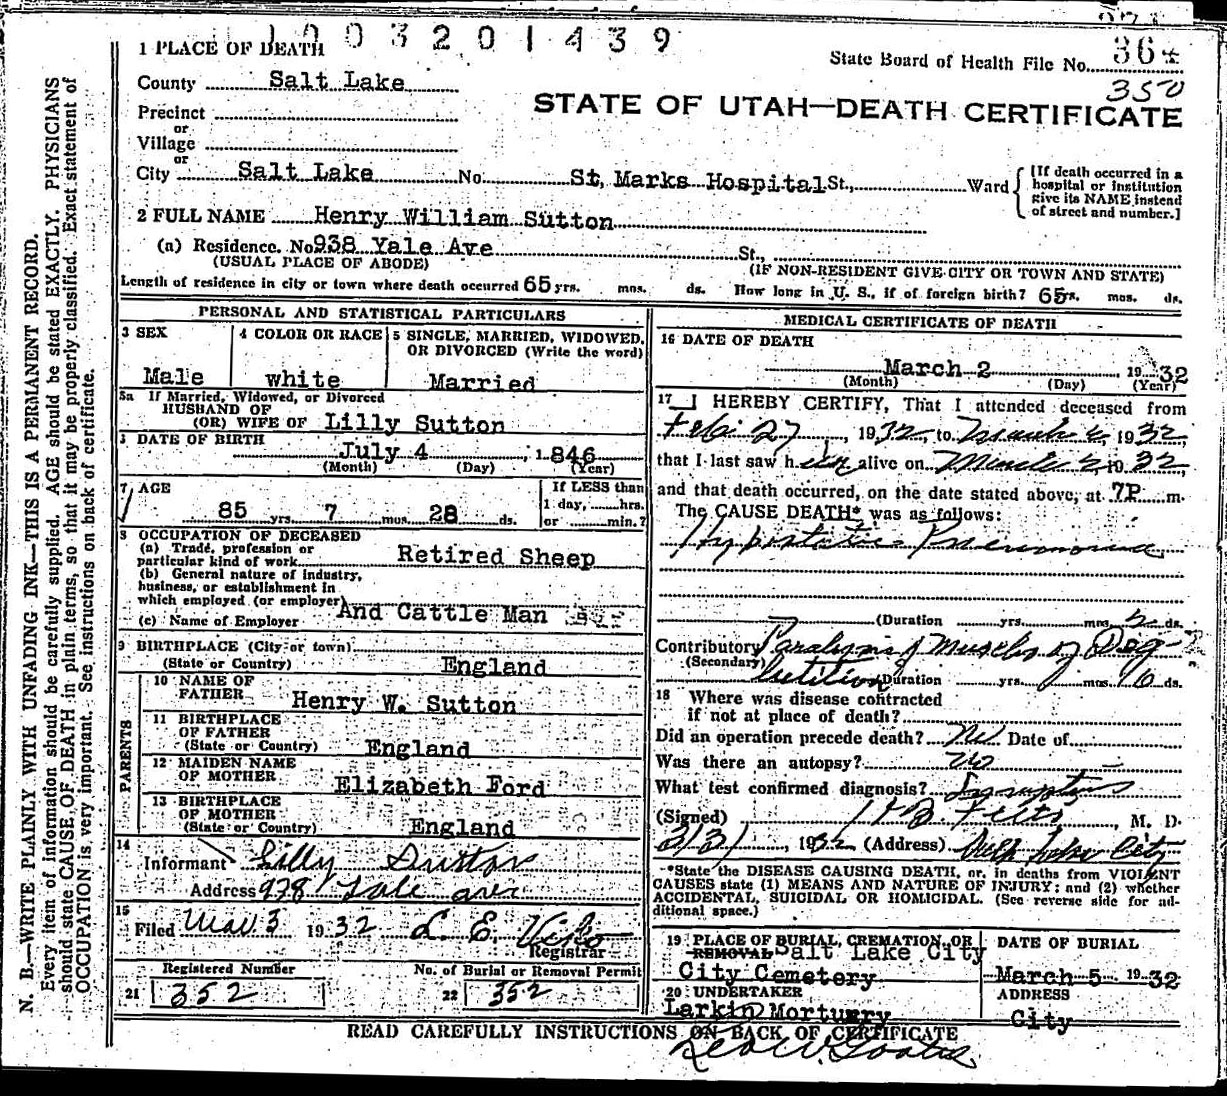 1003201439
1 PLACE OF DEATH
State Board of Health File No. 364
350
County Salt Lake
STATE OF UTAH—DEATH CERTIFICATE
Precinct
or
Village
or
City Salt Lake No. St. Marks Hospital St., Ward
[If death occurred in a
hospital or institution
give its NAME instead
of street and number.]
2 FULL NAME Henry William Sutton
(a) Residence. No. 938 Yale Ave St.,
(USUAL PLACE OF ABODE) (IF NON-RESIDENT GIVE CITY OR TOWN AND STATE)
Length of residence in city or town where death occurred 65 yrs. mos. ds. How long in U. S., if of foreign birth? 65 yrs. mos. ds.
PERSONAL AND STATISTICAL PARTICULARS
3 SEX 4 COLOR OR RACE 5 SINGLE, MARRIED, WIDOWED,
OR DIVORCED (Write the word)
Male white Married
5a If Married, Widowed, or Divorced
HUSBAND OF
(OR) WIFE OF Lilly Sutton
DATE OF BIRTH
July 4, 1846
(Month) (Day) (Year)
7 AGE If LESS than
1 day, hrs.
85 yrs. 7 mos. 28 ds. or min.?
8 OCCUPATION OF DECEASED
(a) Trade, profession or
particular kind of work Retired Sheep
(b) General nature of industry,
business, or establishment in
which employed (or employer) And Cattle Man
(c) Name of Employer
9 BIRTHPLACE (City or town)
(State or Country) England
PARENTS
10 NAME OF
FATHER Henry W. Sutton
11 BIRTHPLACE
OF FATHER
(State or Country) England
12 MAIDEN NAME
OF MOTHER Elizabeth Ford
13 BIRTHPLACE
OF MOTHER
(State or Country) England
14
Informant Lilly Sutton
Address 938 Yale ave
15
Filed Mar 3 1932 L. E. Viko
Registrar
Registered Number No. of Burial or Removal Permit
21 352 22 352
MEDICAL CERTIFICATE OF DEATH
16 DATE OF DEATH
March 2 1932
(Month) (Day) (Year)
17 I HEREBY CERTIFY, That I attended deceased from
Feb 27, 1932, to March 2, 1932,
that I last saw him alive on March 2, 1932,
and that death occurred, on the date stated above, at 7P m.
The CAUSE DEATH* was as follows:
Hypostatic Pneumonia
(Duration yrs. mos. 2 ds.
Contributory Paralysis of Muscles of Deg
(Secondary)
lutition Duration yrs. mos. ds.
18 Where was disease contracted
if not at place of death?
Did an operation precede death? No Date of
Was there an autopsy? no
What test confirmed diagnosis? Symptoms
(Signed) , M. D.
3/3/, 1932 (Address) Salt Lake City
*State the DISEASE CAUSING DEATH, or, in deaths from VIOLENT
CAUSES state (1) MEANS AND NATURE OF INJURY; and (2) whether
ACCIDENTAL, SUICIDAL OR HOMICIDAL. (See reverse side for ad-
ditional space.)
19 PLACE OF BURIAL, CREMATION, OR DATE OF BURIAL
REMOVAL Salt Lake City
City Cemetery March 5 1932
20 UNDERTAKER ADDRESS
Larkin Mortuary City
READ CAREFULLY INSTRUCTIONS ON BACK OF CERTIFICATE
N. B.—WRITE PLAINLY WITH UNFADING INK—THIS IS A PERMANENT RECORD.
Every item of information should be carefully supplied. AGE should be stated EXACTLY. PHYSICIANS
should state CAUSE OF DEATH in plain terms, so that it may be properly classified. Exact statement of
OCCUPATION is very important. See instructions on back of certificate.